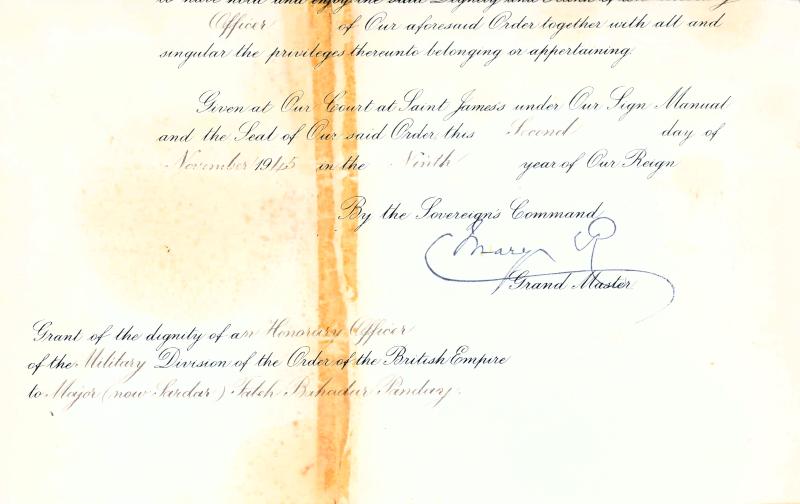 to have hold and enjoy the said Dignity and Rank of
Officer of Our aforesaid Order together with all and
singular the privileges thereunto belonging or appertaining.
Given at Our Court at Saint James's under Our Sign Manual
and the Seal of Our said Order this Second day of
November 1945 in the Ninth year of Our Reign
By the Sovereign's Command,
Mary R
Grand Master
Grant of the dignity of an Honorary Officer
of the Military Division of the Order of the British Empire
to Major (now Sardar) Fateh Bahadur Panday.